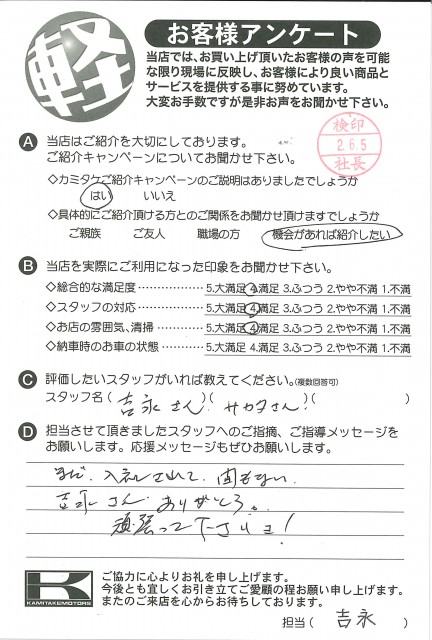 軽
お客様アンケート
当店では、お買い上げ頂いたお客様の声を可能
な限り現場に反映し、お客様により良い商品と
サービスを提供する事に努めています。
大変お手数ですが是非お声をお聞かせ下さい。
検印
2.6.5
社長
A 当店はご紹介を大切にしております。
ご紹介キャンペーンについてお聞かせ下さい。
◇カミタケご紹介キャンペーンのご説明はありましたでしょうか
はい いいえ
◇具体的にご紹介頂ける方とのご関係をお聞かせ頂けますでしょうか
ご親族 ご友人 職場の方 機会があれば紹介したい
B 当店を実際にご利用になった印象をお聞かせ下さい。
◇総合的な満足度‥‥‥‥‥‥ 5.大満足 4.満足 3.ふつう 2.やや不満 1.不満
◇スタッフの対応‥‥‥‥‥‥ 5.大満足 4.満足 3.ふつう 2.やや不満 1.不満
◇お店の雰囲気、清掃‥‥‥‥ 5.大満足 4.満足 3.ふつう 2.やや不満 1.不満
◇納車時のお車の状態‥‥‥‥ 5.大満足 4.満足 3.ふつう 2.やや不満 1.不満
C 評価したいスタッフがいれば教えてください。(複数回答可)
スタッフ名 ( 吉永さん )( サカタさん )( )
D 担当させて頂きましたスタッフへのご指摘、ご指導メッセージを
お願いします。応援メッセージもぜひお願いします。
まだ、入社されて、間もない
吉永さん、ありがとう。
頑張って下さいヨ!
K
KAMITAKEMOTORS
ご協力に心よりお礼を申し上げます。
今後とも宜しくお引き立てご愛顧の程お願い申し上げます。
またのご来店を心からお待ちしております。
担当 ( 吉永 )